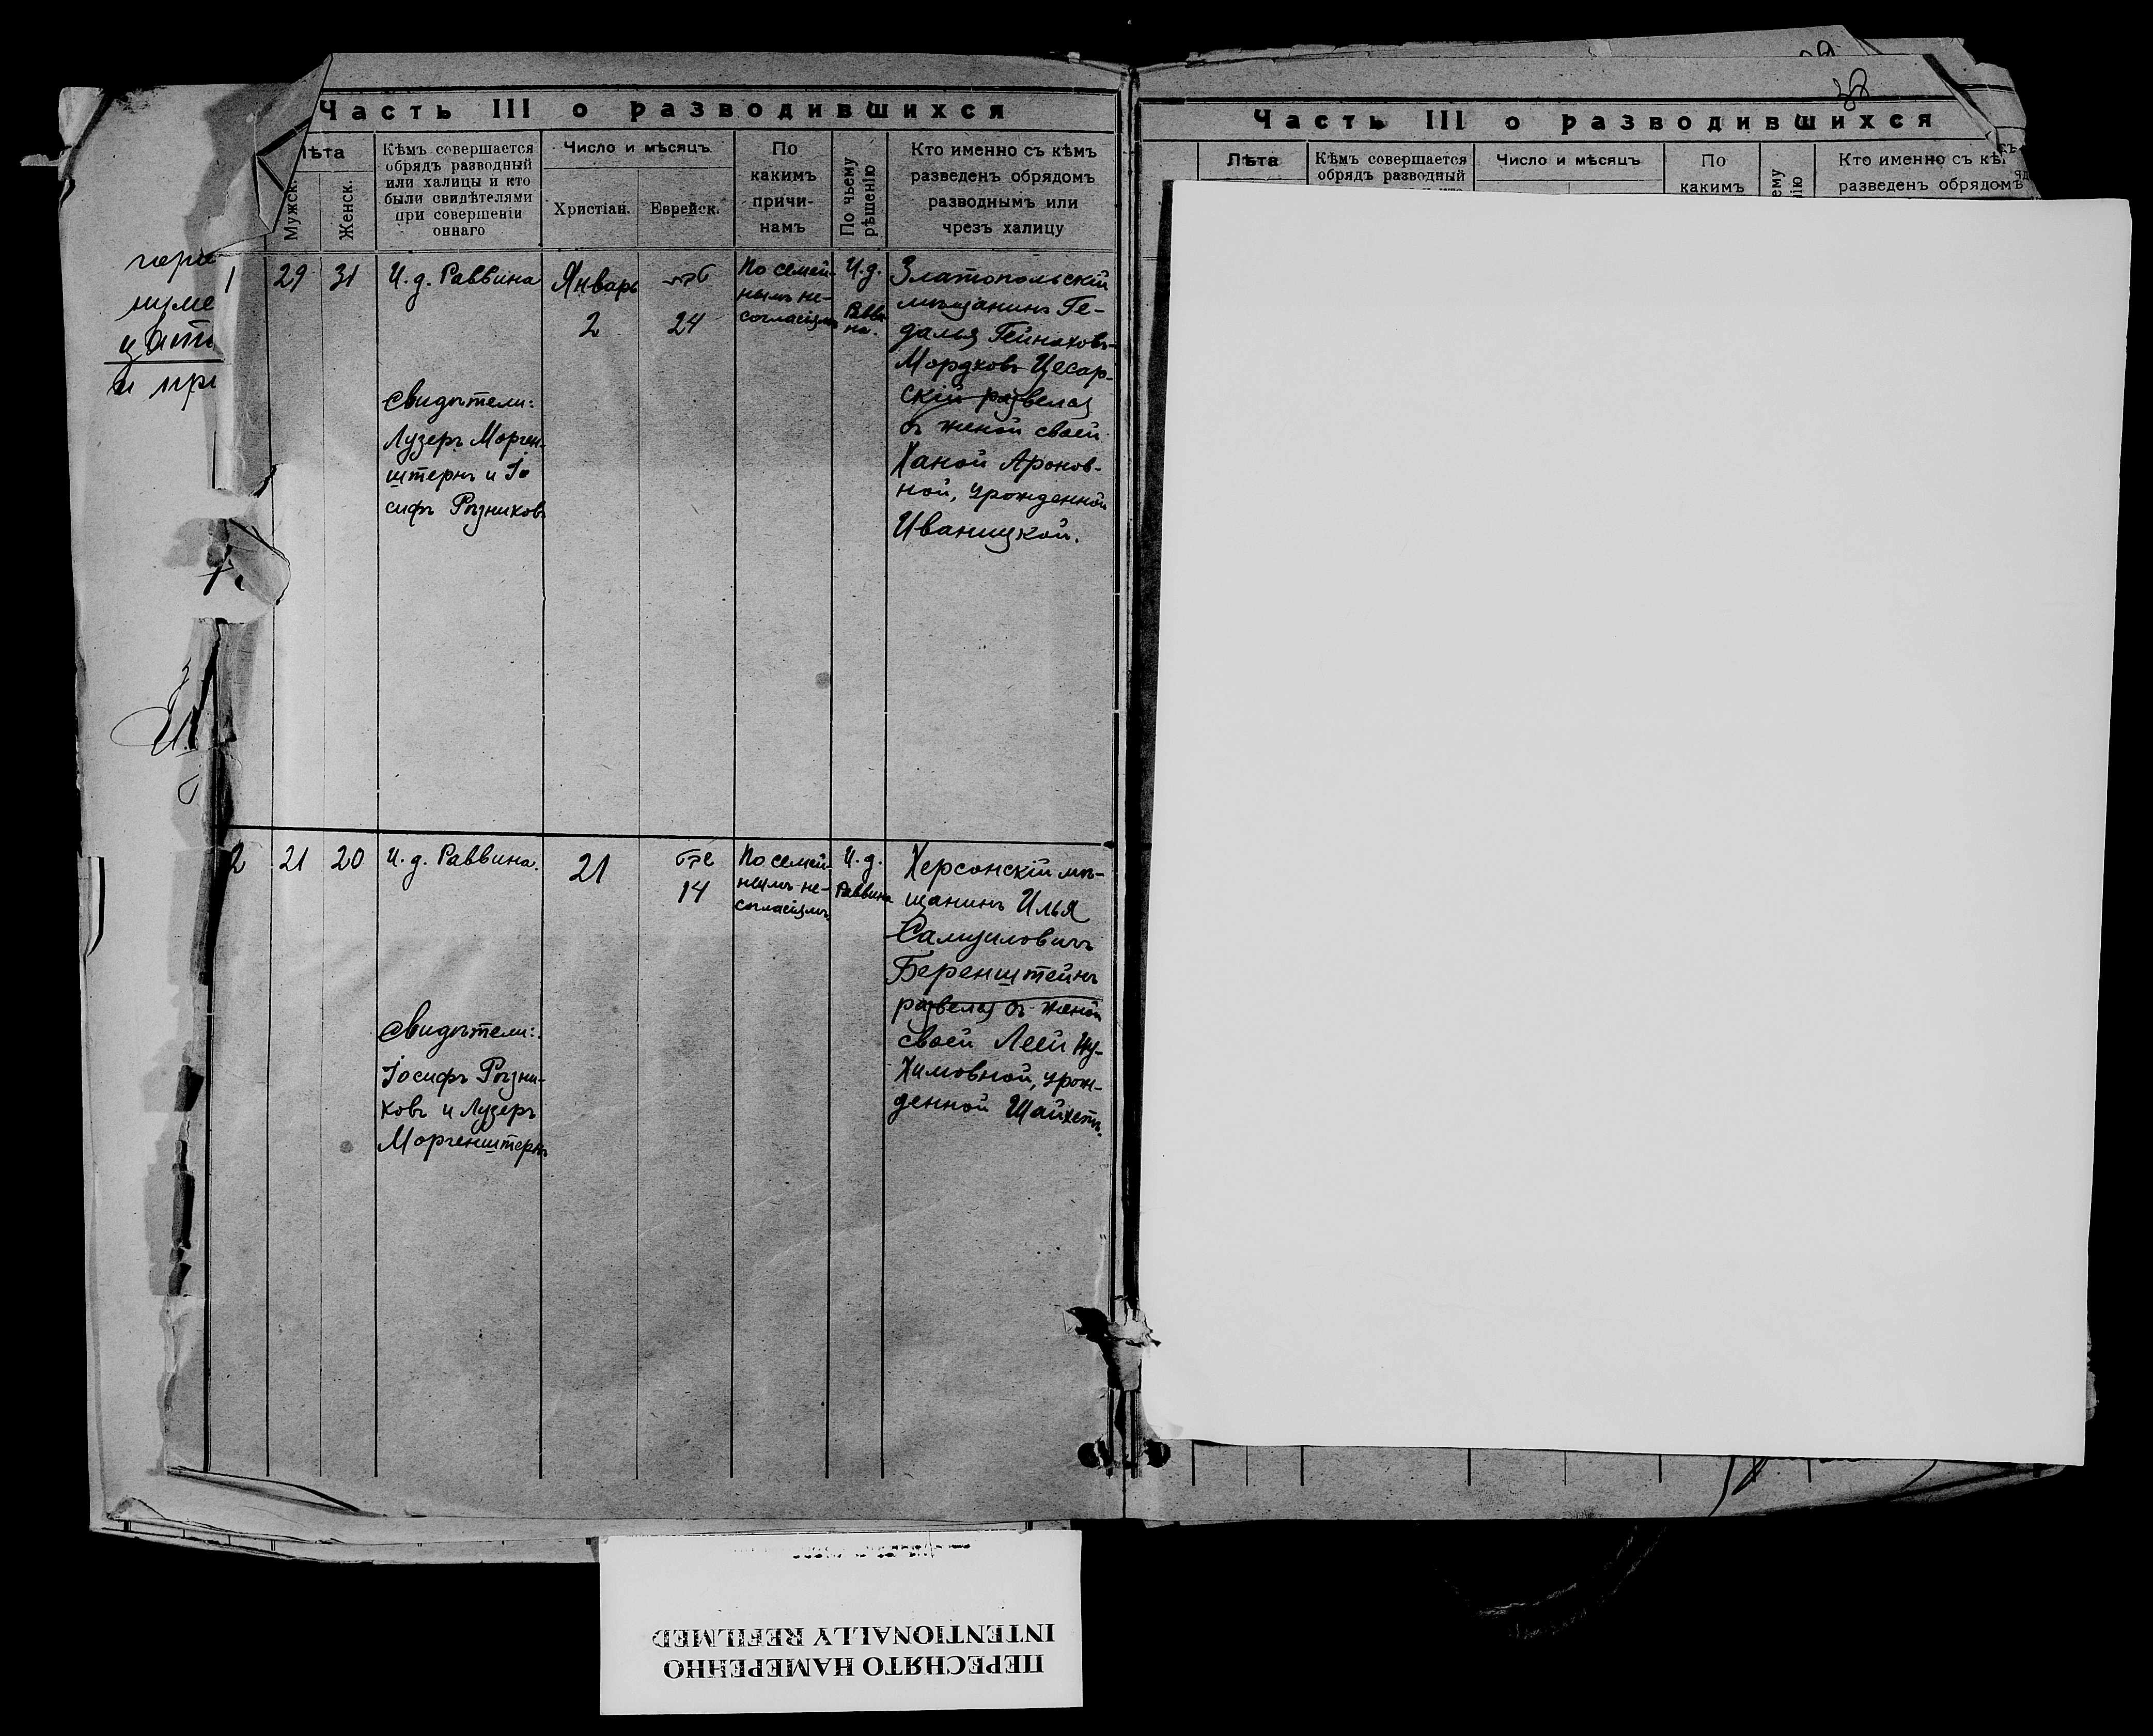 Часть III о разводившихся
Лѣта
Мужск.
Женск.
Кѣмъ совершается
обрядъ разводный
или халицы и кто
были свидѣтелями
при совершеніи
оннаго
Число и мѣсяцъ.
Христіан.
Еврейск.
По
какимъ
причи-
намъ
По чьему
рѣшенію
Кто именно съ кѣмъ
разведенъ обрядомъ
разводнымъ или
чрезъ халицу
1
29
31
И. д. Раввина
Свидѣтели:
Лузеръ Морген-
штернъ и Іо
сифъ Рѣзниковъ
Январь
2
טבת
24
По семей-
нымъ не-
согласіямъ
И. д.
Равви
на.
Златопольскій
мѣщанинъ Ге-
далья Гейнаховъ-
Мордковъ Цесар-
скій развелся
съ женой своей
Ханой Аронов-
ной, урожденной
Иваницкой.
2
21
20
И. д. Раввина.
Свидѣтели:
Іосифъ Рѣзни-
ковъ и Лузеръ
Моргенштернъ
21
שבט
14
По семей-
нымъ не-
согласіямъ
И. д.
Раввина
Херсонскій мѣ-
щанинъ Илья
Самуиловичъ
Беренштейнъ
развелся съ женой
своей Леей Ну-
химовной, урож-
денной Шайхетъ.
Часть III о разводившихся
Лѣта
Кѣмъ совершается
обрядъ разводный
Число и мѣсяцъ
По
какимъ
Кто именно съ кѣ
разведенъ обрядомъ
ПЕРЕСНЯТО НАМЕРЕННО
INTENTIONALLY REFILMED